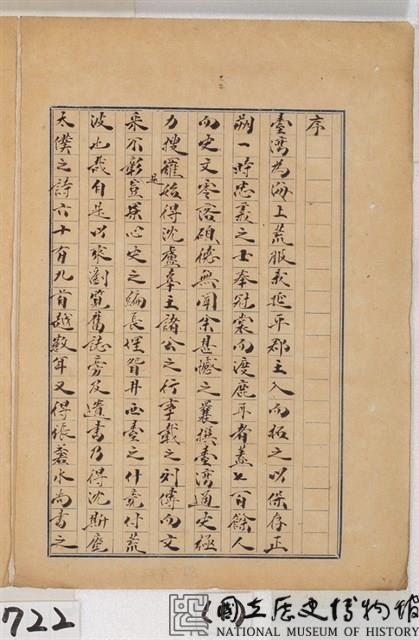 序
臺灣為海上荒服我延平郡主入而拓之以保存正
朔一時忠義之士奉冠裳而渡鹿耳者蓋七百餘人
而史文零落碩德無聞余甚憾之曩撰臺灣通史極
力搜羅始得沈盧辜主諸公之行事載之列傳而文
采不彰實是業心史之編長埋眢井西臺之什竟付荒
波也哉自是以來瀏覽舊誌旁及遺書乃得沈斯庵
太僕之詩六十有九首越數年又得張蒼水尚書之
722
國立歷史博物館
NATIONAL MUSEUM OF HISTORY